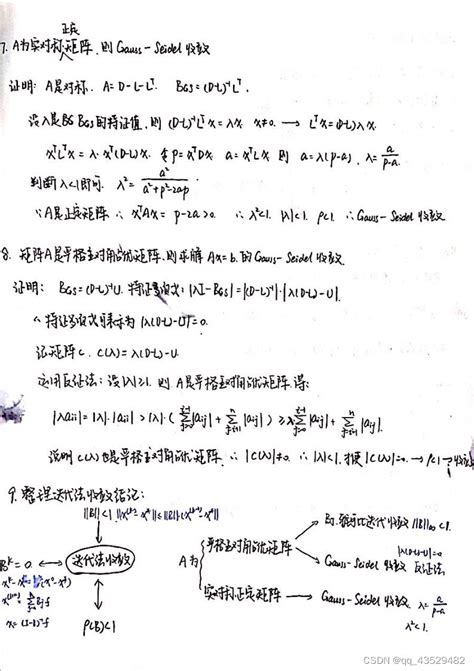 正定
7. A为实对称矩阵, 则 Gauss-Seidel 收敛
证明: A是对称. A=D-L-Lᵀ. B_GS=(D-L)⁻¹Lᵀ
设λ是 B_GS 的特征值, 则 (D-L)⁻¹Lᵀx=λx. x≠0. → Lᵀx=(D-L)λx.
xᵀLᵀx=λ·xᵀ(D-L)x. 令 p=xᵀDx. a=xᵀLx 则 a=λ(p-a), λ=a/(p-a)
判断λ<1即可. λ²=a²/(a²+p²-2ap)
∵A是正定矩阵 ∴ xᵀAx=p-2a>0. ∴ λ²<1. |λ|<1. ρ<1. ∴Gauss-Seidel 收敛
8. 矩阵A是严格主对角占优矩阵, 则求解 Ax=b. 的 Gauss-Seidel 收敛
证明: B_GS=(D-L)⁻¹U. 特征多项式: |λI-B_GS|=|(D-L)⁻¹|·|λ(D-L)-U|.
∴特征多项式可表示为 |λ(D-L)-U|=0.
记矩阵C. C(λ)=λ(D-L)-U.
运用反证法: 设|λ|≥1. 则 A是严格主对角占优矩阵 得:
|λaᵢᵢ|=|λ|·|aᵢᵢ|>|λ|·(∑|aᵢⱼ|+∑|aᵢⱼ|)≥λ∑|aᵢⱼ|+∑|aᵢⱼ|.
说明 C(λ) 也是严格主对角占优矩阵. ∴|C(λ)|≠0. ∴|λ|<1. 才使|C(λ)|=0. → ρ<1 → 收敛
9. 整理迭代法收敛结论:
||B||<1
迭代法收敛
Bᵏ=0
ρ(B)<1
A为
严格主对角占优矩阵
雅可比迭代收敛 ||B||∞<1.
|λ(D-L)-U|=0
Gauss-Seidel 收敛 反证法.
实对称正定矩阵
Gauss-Seidel 收敛. λ=a/(p-a)
λ²<1.
CSDN @qq_43529482